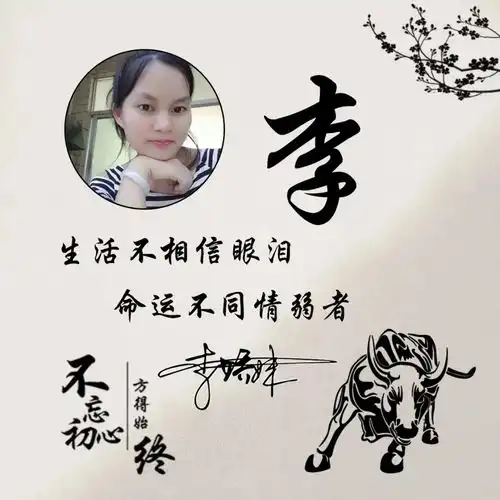 李
生活不相信眼泪
命运不同情弱者
不忘初心
方得始终